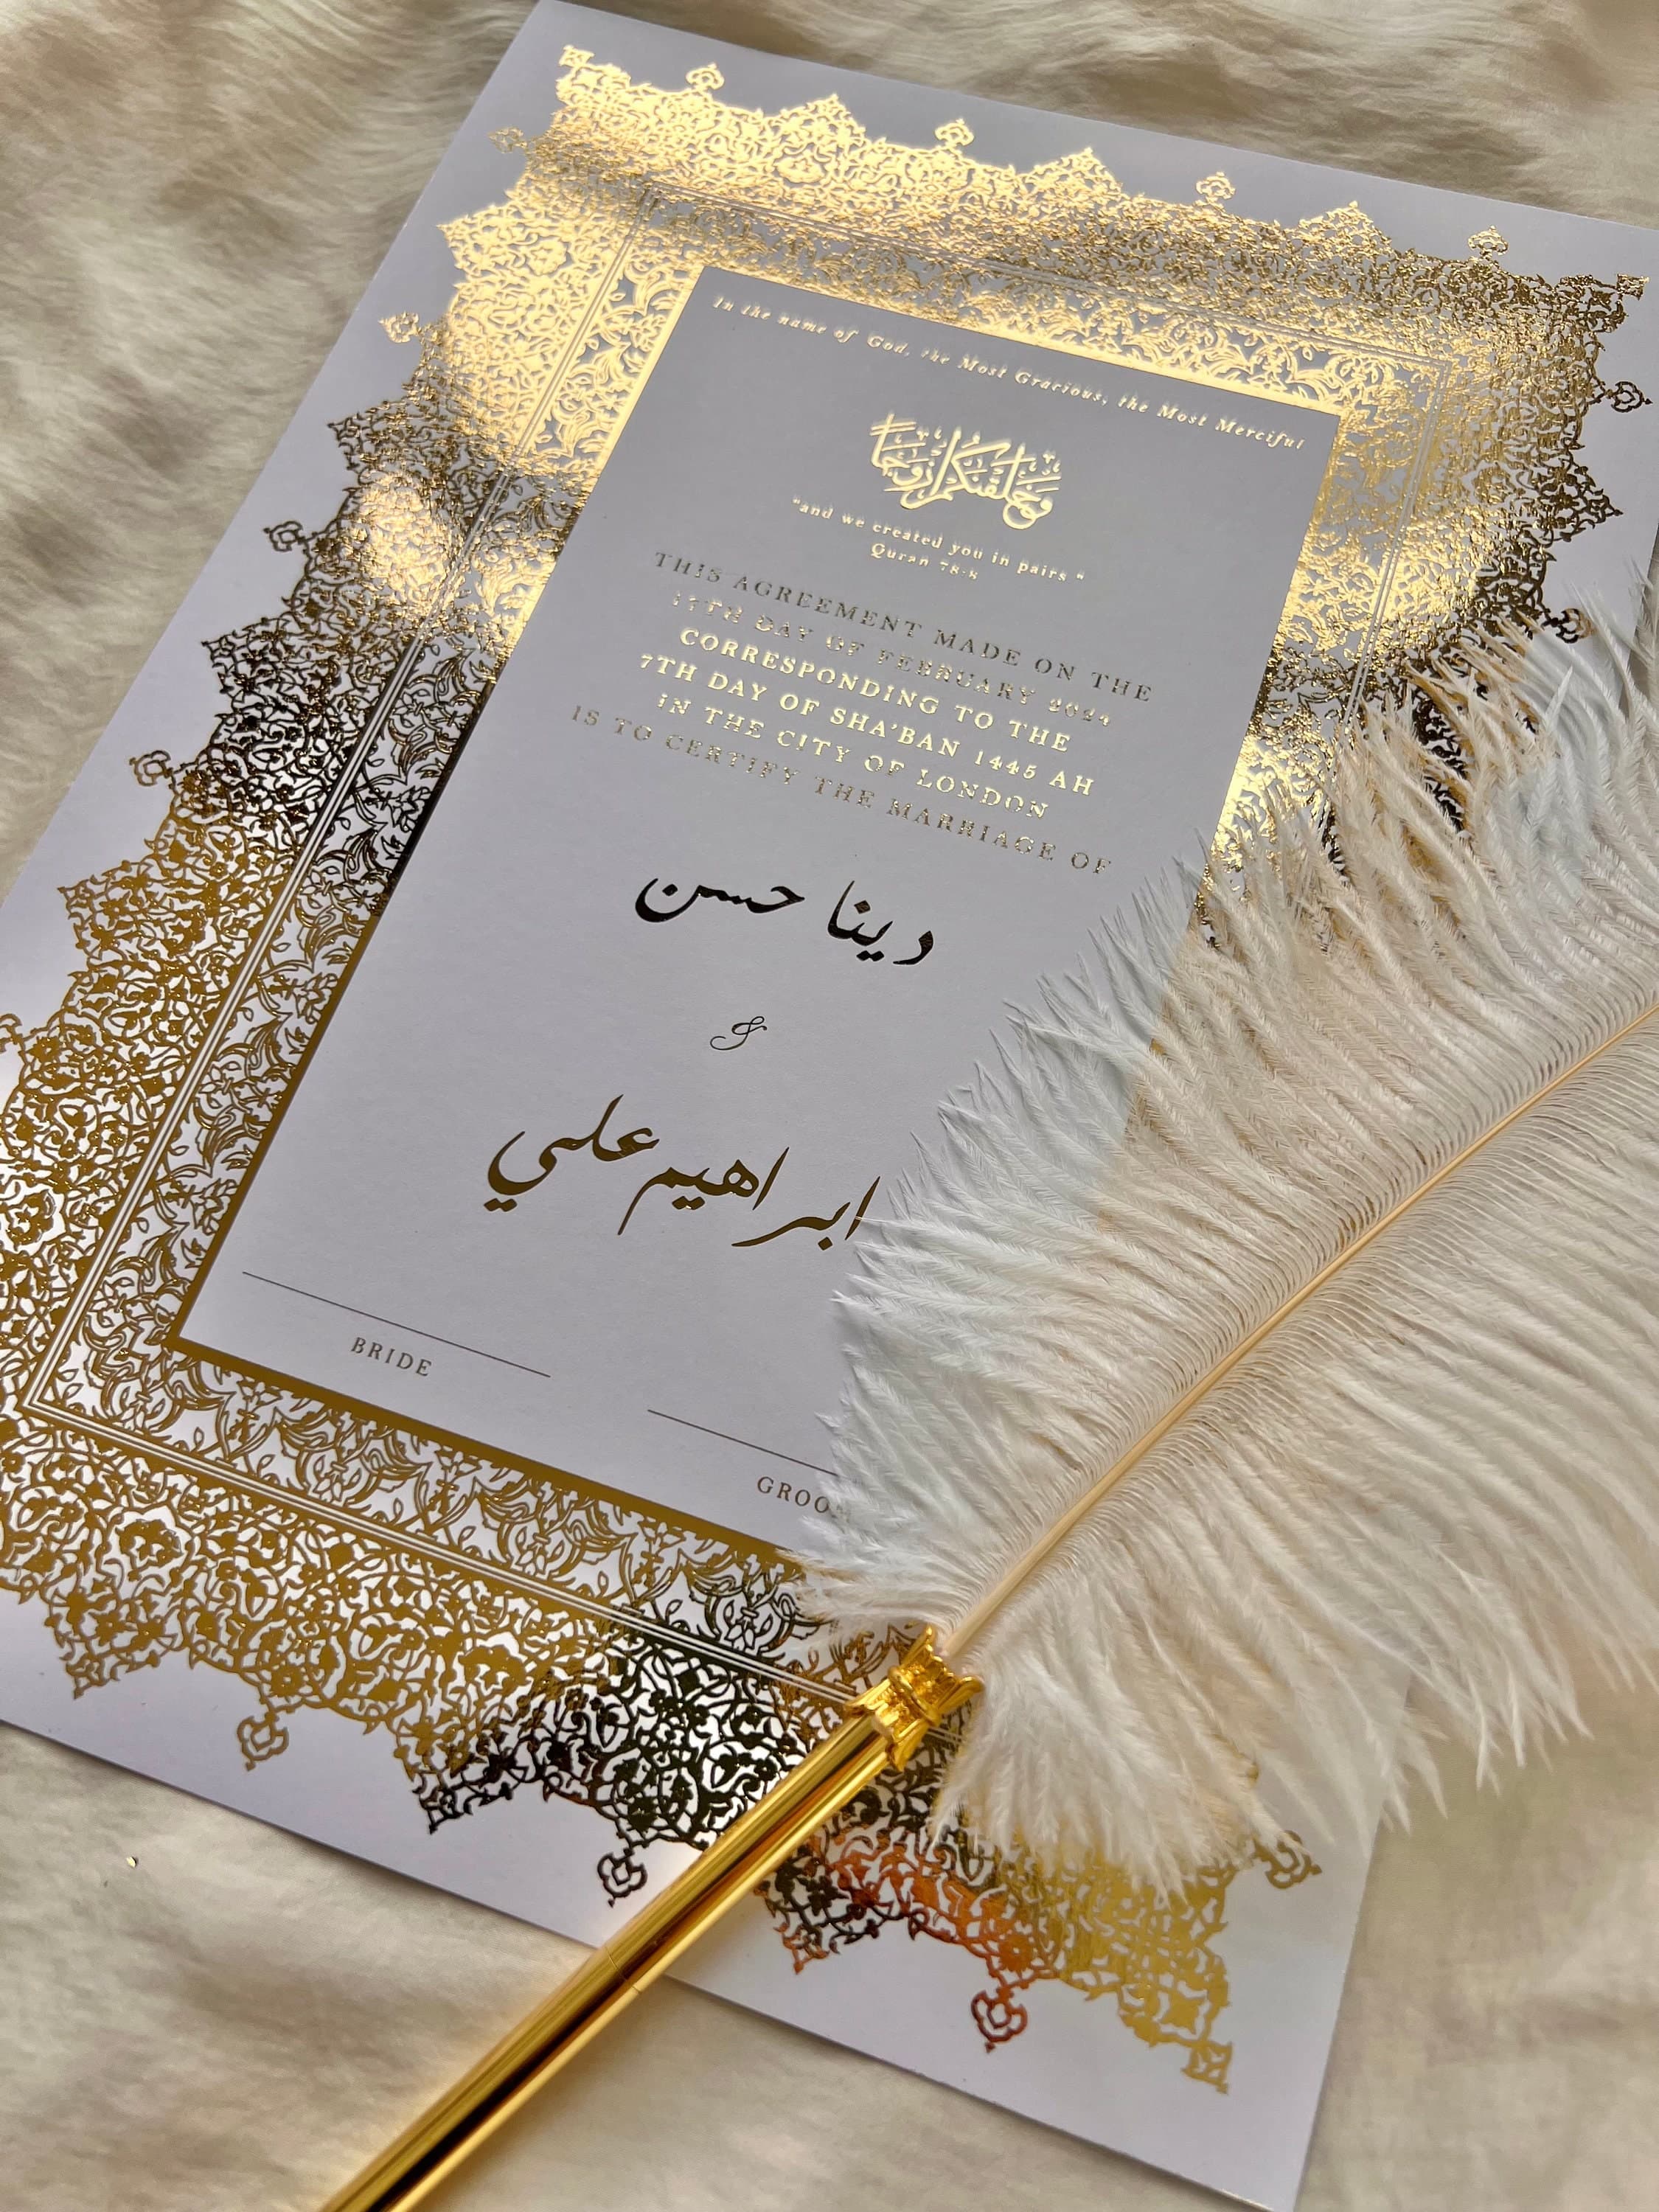 In the name of God, the Most Gracious, the Most Merciful
وخلقنكم ازوجا
"and we created you in pairs "
Quran 78:8
THIS AGREEMENT MADE ON THE
17TH DAY OF FEBRUARY 2024
CORRESPONDING TO THE
7TH DAY OF SHA'BAN 1445 AH
IN THE CITY OF LONDON
IS TO CERTIFY THE MARRIAGE OF
دينا حسن
&
ابراهيم علي
BRIDE
GROOM